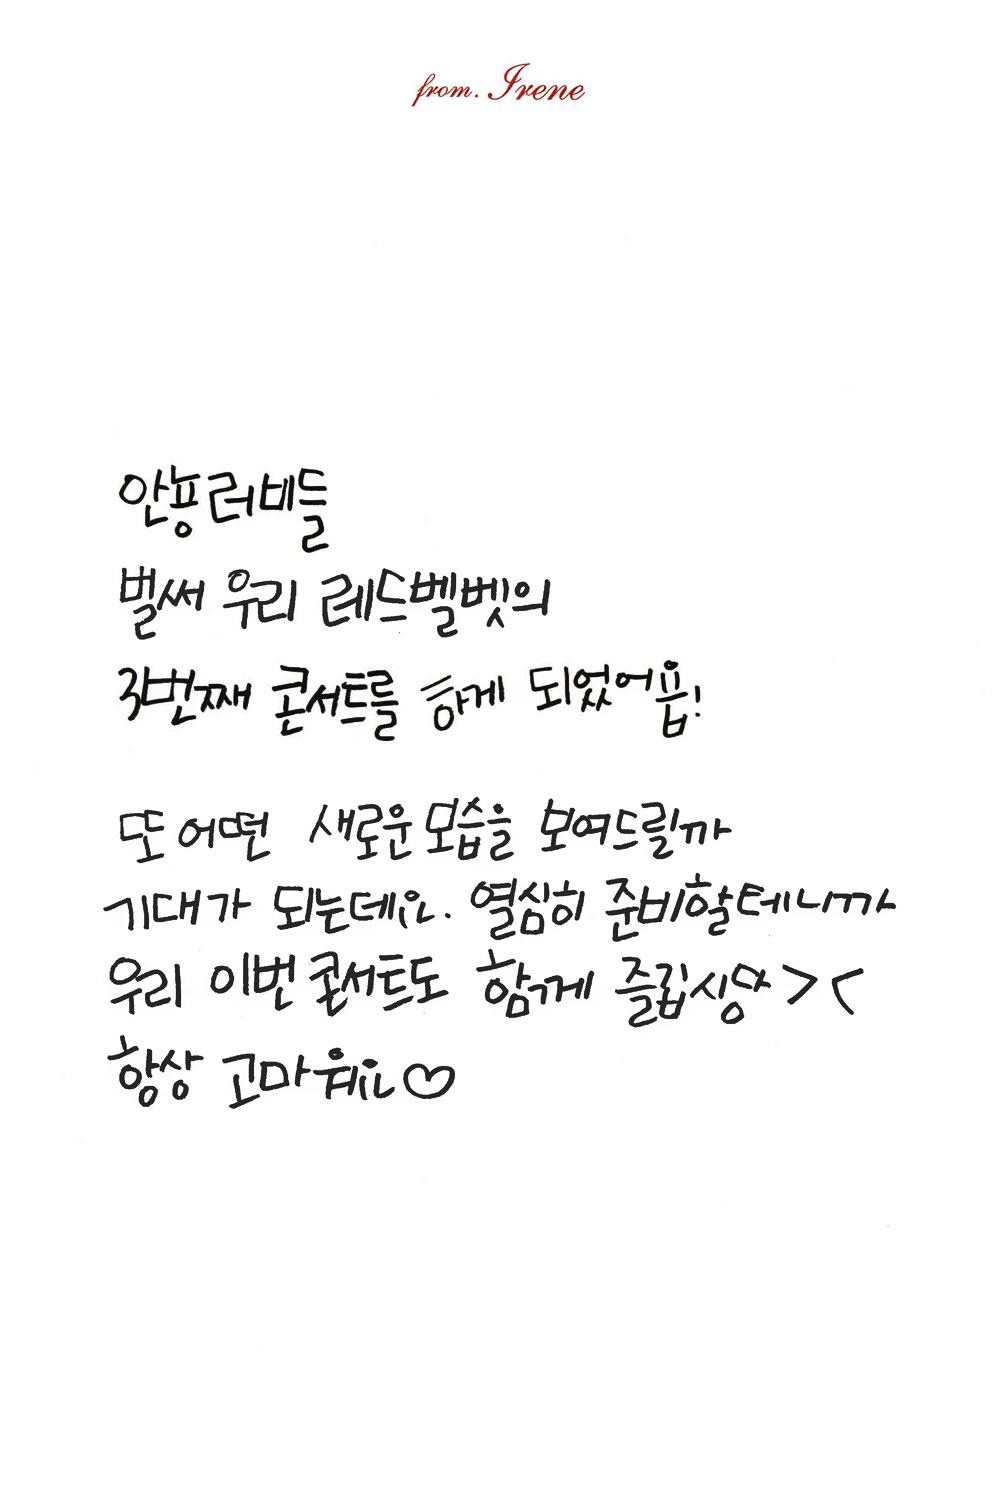 from. Irene
안뇽 러비들
벌써 우리 레드벨벳의
3번째 콘서트를 하게 되었어욥!
또 어떤 새로운 모습을 보여드릴까
기대가 되는데요. 열심히 준비할테니까
우리 이번 콘서트도 함께 즐깁싱다 ><
항상 고마워요♡